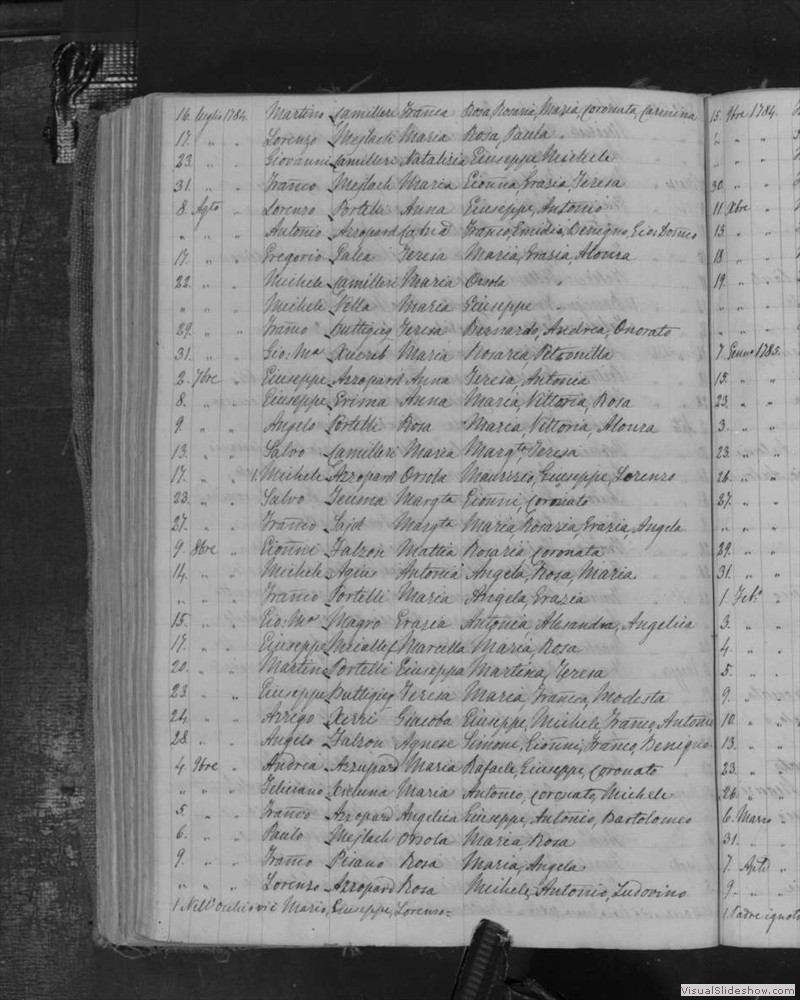 16. luglio 1784. Martino Camilleri Franca Rosa, Rosaria, Maria, Coronata, Carmina
17. " " Lorenzo Mejlach Maria Rosa, Paula
23. " " Giovanni Camilleri Natalizia Giuseppe Michele
31. " " Franco Mejlach Maria Gionna Grazia, Teresa
8. Agto " Lorenzo Portelli Anna Giuseppe, Antonio
" " " Antonio Azzopard Franco, Emidio, Benigno,
17. " " Gregorio Galea Teresa Maria, Grazia, Aloura
22. " " Michele Camilleri Maria Orsola
" " " Michele Vella Maria Giuseppe
29. " " Franco Buttigieg Teresa Bernardo, Andrea, Onorato
31. " " Gio: Ma Xuereb Maria Rosaria, Petronilla
2. 7bre " Giuseppe Azzopard Anna Teresa, Antonia
8. " " Giuseppe Grima Anna Maria, Vittoria, Rosa
9. " " Angelo Portelli Rosa Maria, Vittoria, Aloura
13. " " Salvo Camilleri Maria Margta Teresa
17. " " 1. Michele Azzopard Orsola Maurizio, Giuseppe, Lorenzo
23. " " Salvo Margta Gionni, Coronato
27. " " Franco Said Margta Maria, Rosaria, Grazia, Angela
9. 8bre " Gionni Falzon Mattia Rosaria Coronata
14. " " Michele Agius Antonia Angela, Rosa, Maria
" " " Franco Portelli Maria Angela, Grazia
15. " " Gio: Ma Magro Grazia Antonia, Alesandra, Angelica
17. " " Giuseppe Micallef Marcella Maria, Rosa
20. " " Martino Portelli Giuseppa Martina, Teresa
23 " " Giuseppe Buttigieg Teresa Maria, Franca, Modesta
24. " " Arrigo Xerri Giacoba Giuseppe, Michele, Franco, Antonio
28. " " Angelo Falzon Agnese Simone, Gionni, Franco, Benigno
4. 9bre " Andrea Azzupard Maria Rafaele, Giuseppe, Coronato
" " " Feliciano Xicluna Maria Antonio, Coronato, Michele
5. " " Franco Azzopard Angelica Giuseppe, Antonio, Bartolomeo
6. " " Paulo Mejlach Orsola Maria Rosa
9. " " Franco Pisano Rosa Maria, Angela
" " " Lorenzo Azzopard Rosa Michele, Antonio, Ludovino
1 Nell' Mario, Giuseppe, Lorenzo=
15. 9bre 1784.
" "
30. " "
11 Xbre "
13. " "
18 " "
19. " "
" " "
7. Genno 1785.
13. " "
23. " "
3. " "
23. " "
26. " "
27. " "
" " "
29. " "
31. " "
1. Feb.o "
3. " "
4. " "
5. " "
9. " "
10. " "
13. " "
23. " "
26. " "
6. Marzo
31. "
7. Aple "
9. " "
1. Padre ignoto
VisualSlideshow.com